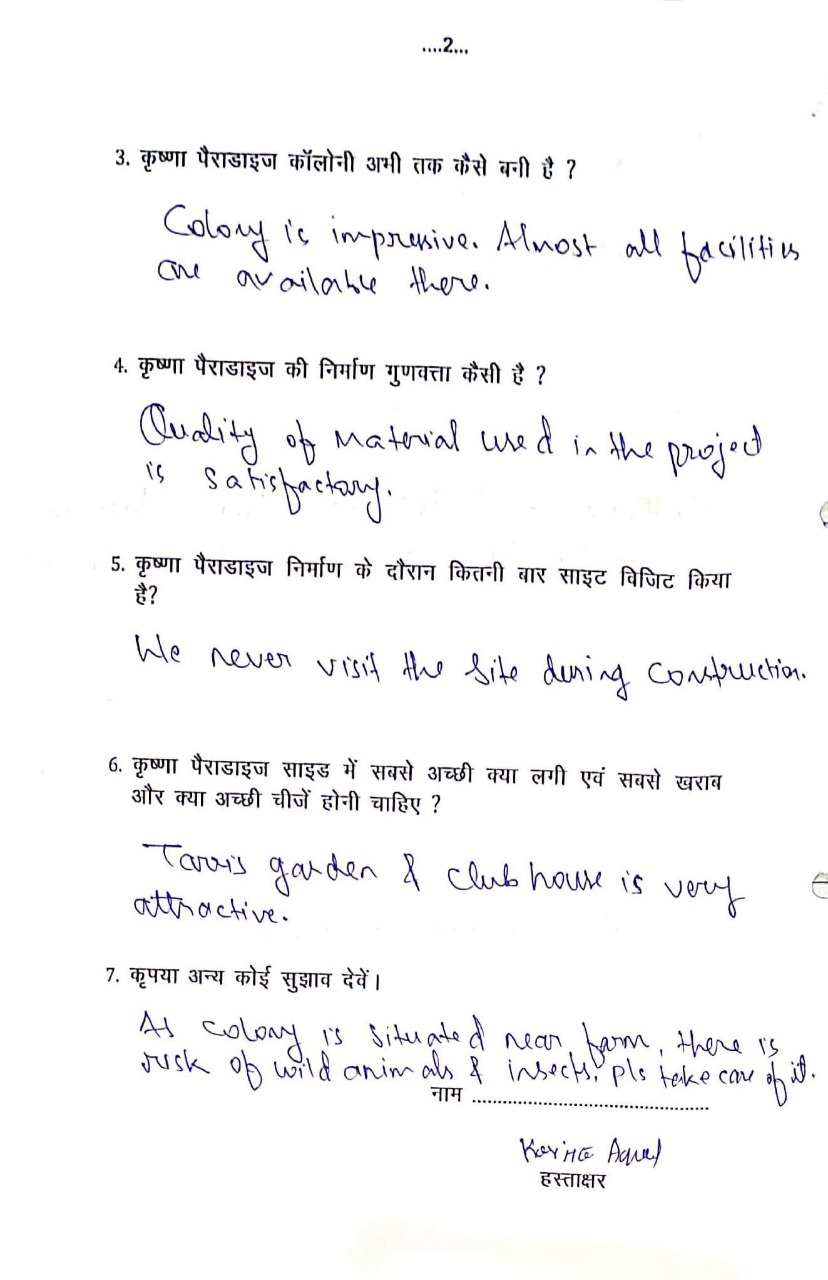 ....2...
3. कृष्णा पैराडाइज कॉलोनी अभी तक कैसे बनी है ?
Colony is impressive. Almost all facilities
are available there.
4. कृष्णा पैराडाइज की निर्माण गुणवत्ता कैसी है ?
Quality of Material used in the project
is satisfactory.
5. कृष्णा पैराडाइज निर्माण के दौरान कितनी बार साइट विजिट किया
है?
We never visit the site during construction.
6. कृष्णा पैराडाइज साइड में सबसे अच्छी क्या लगी एवं सबसे खराब
और क्या अच्छी चीजें होनी चाहिए ?
garden & club house is very
attractive.
7. कृपया अन्य कोई सुझाव देवें।
As colony is situated near farm, there is
risk of wild animals & insects, pls take care of it.
नाम ................................................
हस्ताक्षर